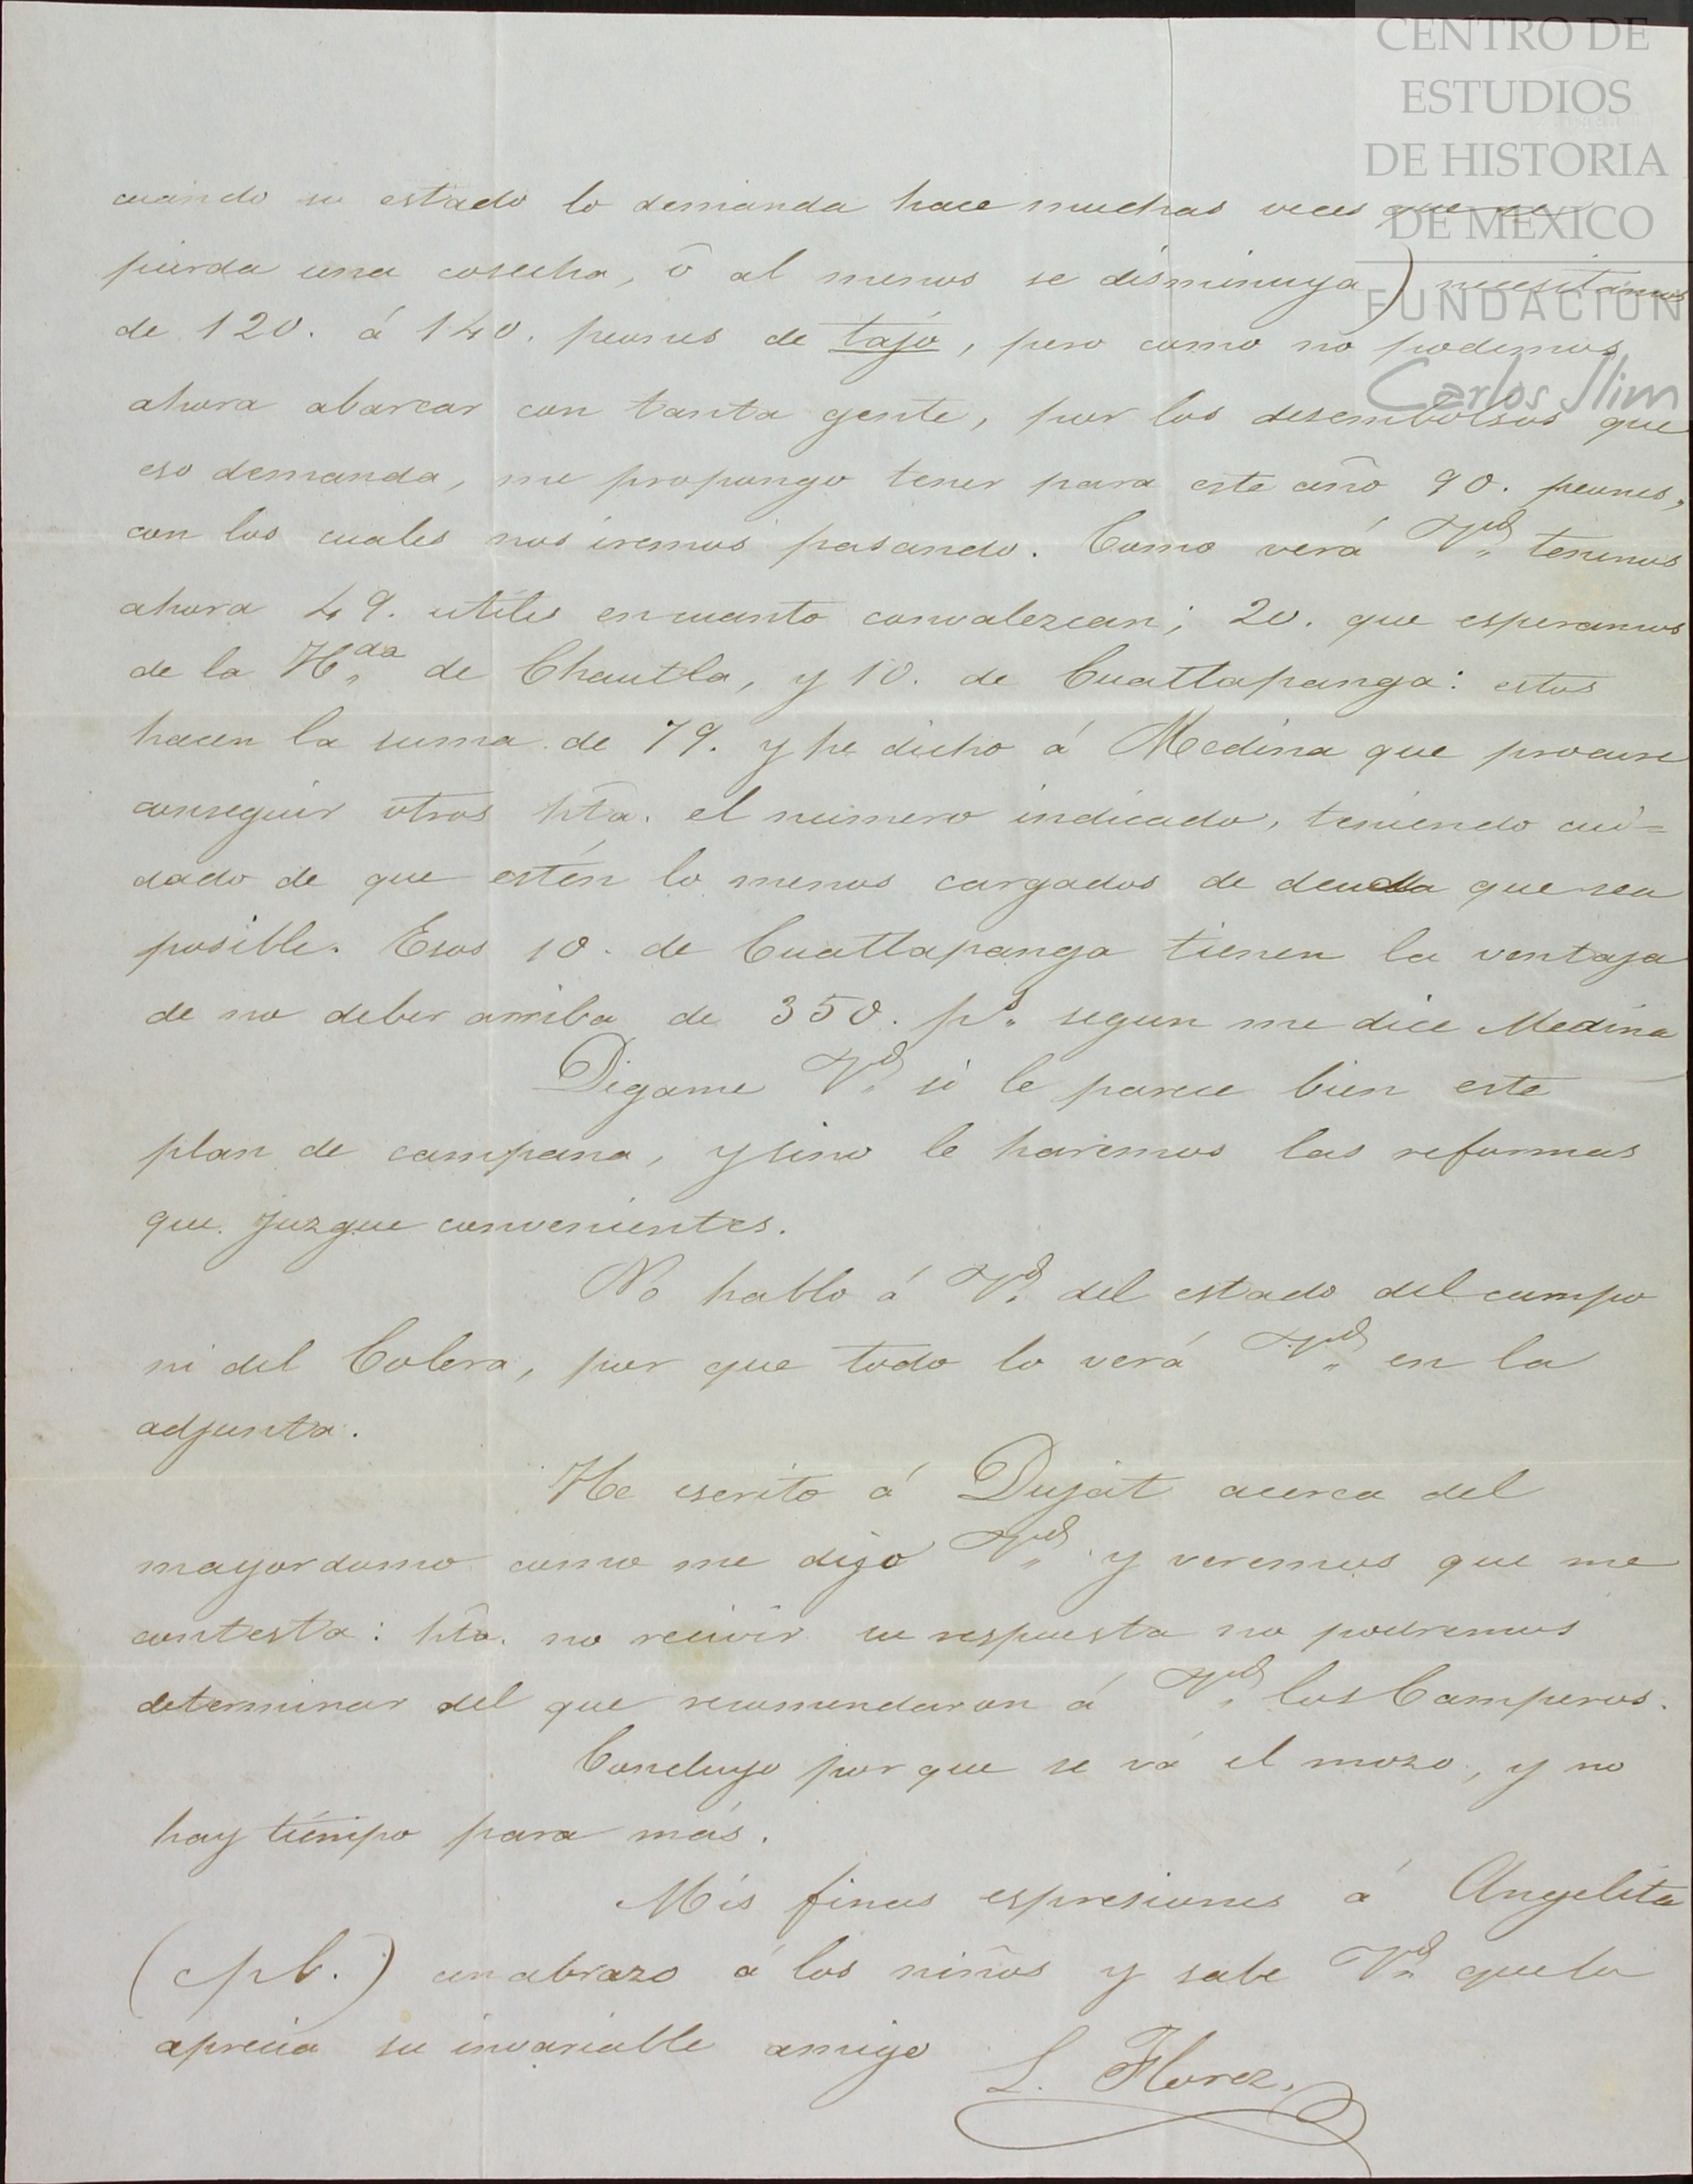 CENTRO DE
ESTUDIOS
DE HISTORIA
DE MEXICO
FUNDACION
Carlos Slim
cuando su estado lo demanda hace muchas veces que se
pierda una cosecha, ó al menos se disminuya) necesitamos
de 120. á 140. peones de tajo, pero como no podemos
ahora abarcar con tanta gente, por los desembolsos que
eso demanda, me propongo tener para este año 90. peones,
con los cuales nos iremos pasando. Como verá Vd. tenemos
ahora 49. utiles en cuanto convalezcan; 20. que esperamos
de la Hda. de Chautla, y 10. de Cuatlapanga: estos
hacen la suma de 79. y he dicho á Medina que procure
conseguir otros hta. el número indicado, teniendo cui=
dado de que estén lo menos cargados de deuda que sea
posible. Esos 10. de Cuatlapanga tienen la ventaja
de no deber arriba de 350. ps. segun me dice Medina
Digame Vd. si le parece bien este
plan de campana, y sino le haremos las reformas
que juzgue convenientes.
No hablo á Vd. del estado del campo
ni del Colera, por que todo lo verá Vd. en la
adjunta.
He escrito á Dujat acerca del
mayordomo como me dijo Vd. y veremos que me
contesta: hta. no recivir su respuesta no podremos
determinar del que recomendaron á Vd. los Camperos.
Concluyo por que se vá el mozo, y no
hay tiémpo para más.
Mis finas espresiones á Angelita
(cpb.) un abrazo á los niños y sabe Vd. que lo
aprecia su invariable amigo
L. Florez.